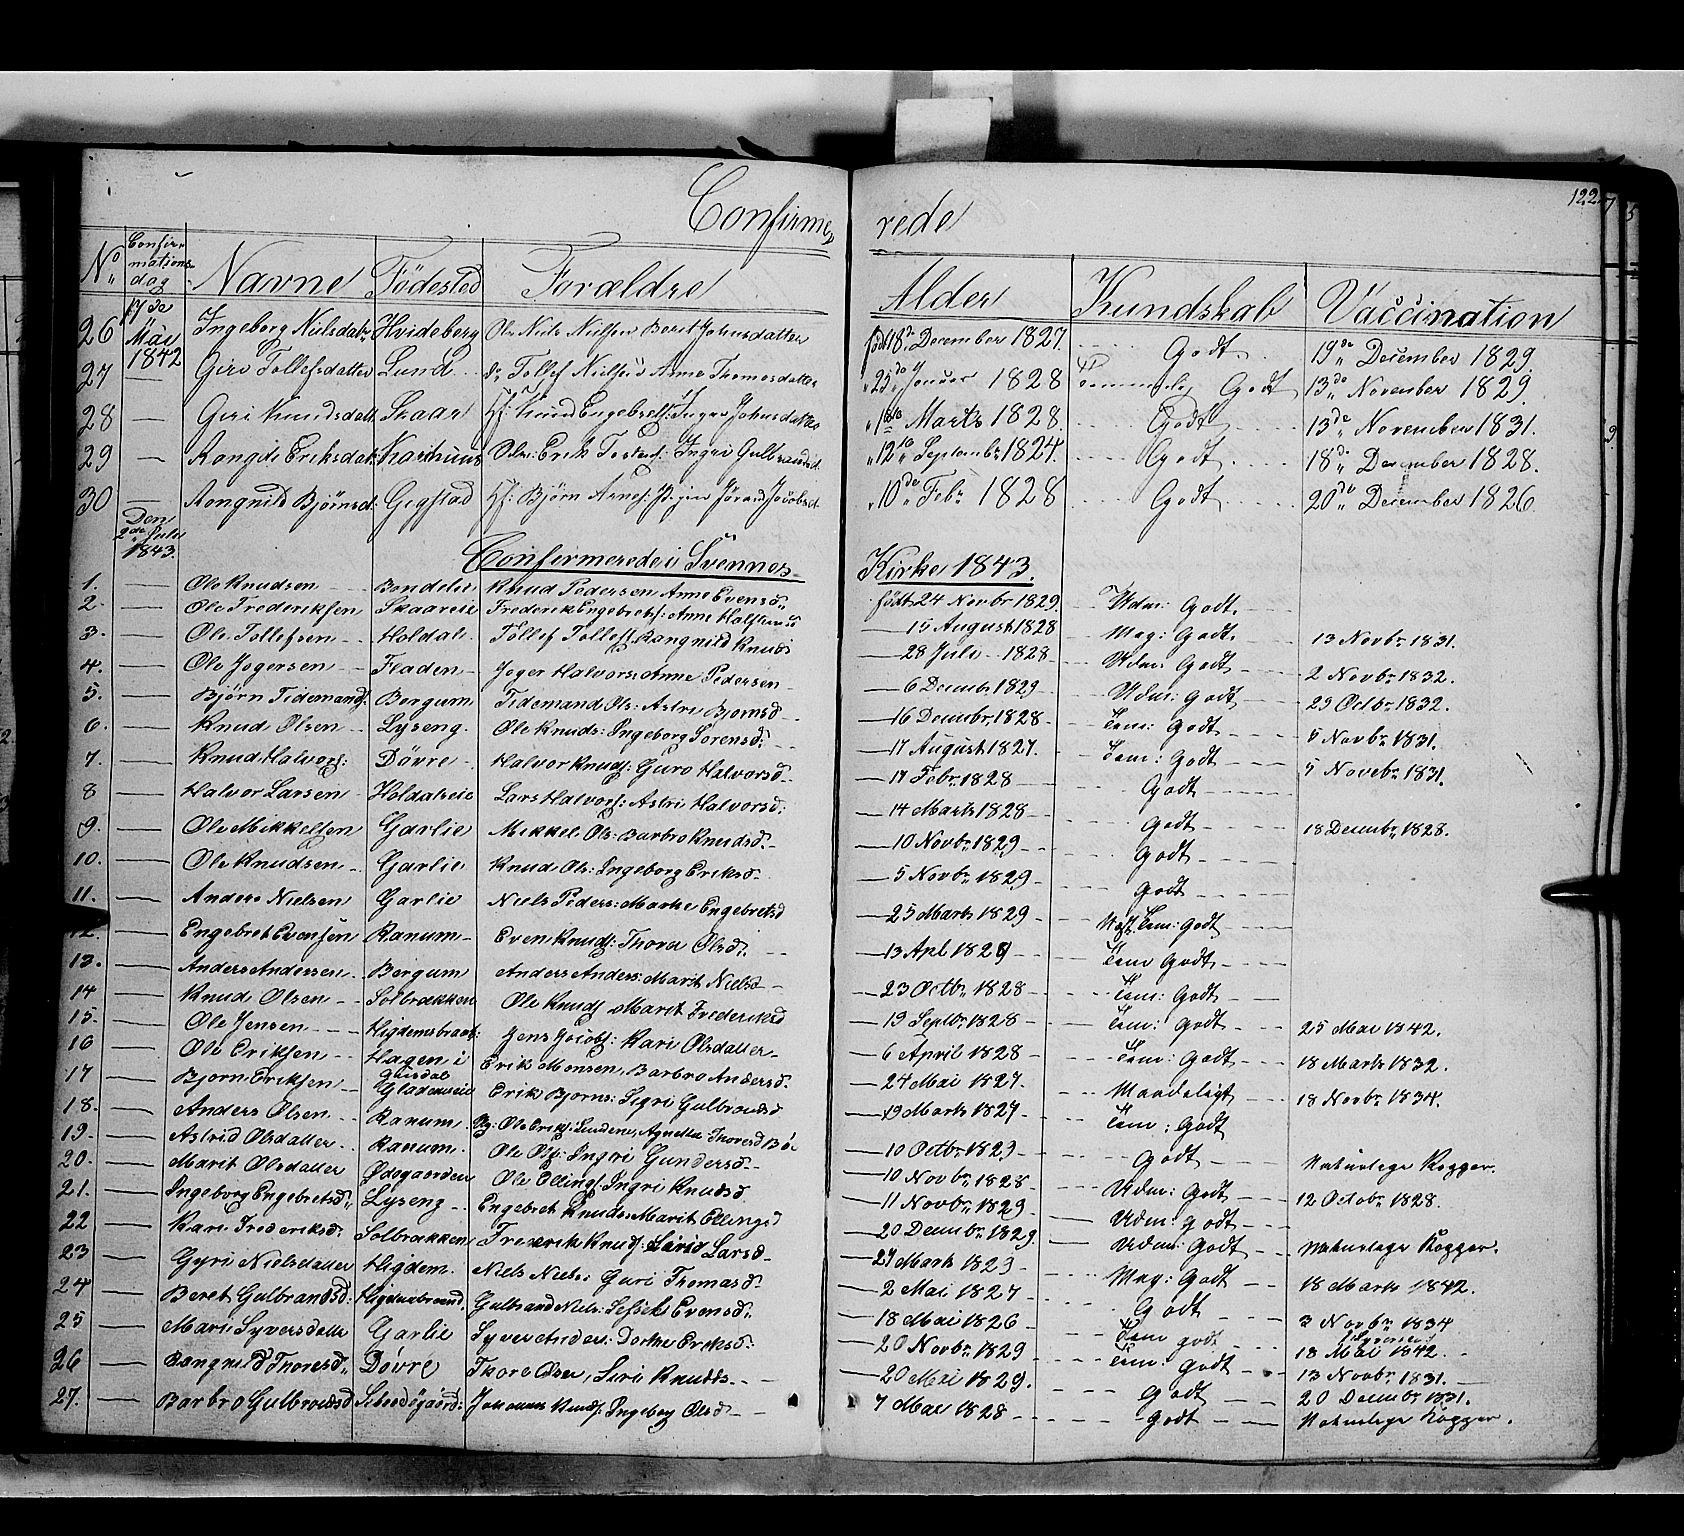 122
Confirme rede
No Confirmations dag Navne Födested Forældre Alder Kundskab Vaccination
26 17de Mai 1842 Ingeborg Nielsdatr Hvideberg Niels Nielsen Berit Johnsdatter född 18de December 1827 Godt 19de December 1829.
27 — Giri Tollefsdatter Lund Tollef Nielsen Anne Thomasdatter 23de Januar 1828 Temmelig Godt 13de November 1829.
28 — Giri Knudsdatt Skaar Hf: Knud Engebretsen Johnsdatter Marts 1828. Godt 13de November 1831.
29 — Rangdi Eriksdat Erik Ingri Gulbrandsd 12te Septembr 1827. Godt 18de December 1828.
30 — Rongnild Björnsd: Gigstad Hf: Björn Arnes: Jacobsd. 10de Febr 1828 Godt 20de December 1826.
Den 2den Juli 1843.
Confirmerede i Svennes Kirke 1843.
1. — Ole Knudsen Bondelie Knud Pedersen Anne Evensd. född 24 Novbr 1829 Udm: Godt.
2. — Ole Frederiksen Skaareie Frederik Engebrets: Anne 15 August 1828 Meg: Godt. 13 Novbr 1831.
3. — Ole Tollefsen Holdal Tollef Tollefs Rangnild Knuds 28 Juli 1828 Udm: Godt 2 Novbr 1832.
4. — Ole Jogersen Fladen Joger Halvors: Anne Pedersen 6 Decembr 1829 Udm: Godt 29 Octbr 1832.
5. — Björn Tidemands: Bergum Tidemand Ols: Astri Bjornsd 16 Decembr 1828 Tem: Godt 5 Novbr 1831.
6. — Knud Olsen Lyseng. Ole Knuds: Ingeborg Sorensd: 17 August 1827. Tem: Godt 5 Novebr 1831.
7. — Knud Halvors: Dövre Halvor Knuds: Guro Halvorsd. 17 Febr 1828 Godt
8 — Halvor Larsen Holdalseie Lars Halvors: Astri Halvorsd: 14 Marts 1828 Godt 18 Decembr 1828.
9. — Ole Mikkelsen Garlie Mikkel Ols: Barbro Knudsd. 10 Novbr 1829 Godt
10. — Ole Knudsen Garlie Knud Ols: Ingeborg Eriksd. 5 Novbr 1829 Godt
11. — Anders Nielsen Garlie Niels Peders: Marthe Engebretsd 25 Marts 1829 Tem: Godt
12. — Engebret Evensen Ranum Even Knuds: Thora Olsd: 13 Apl 1829 Tem Godt
13. — Anders Andersen Bergum Anders Anders: Marit Nielsd 23 Octbr 1828 Tem: Godt
14 — Knud Olsen Solbrækken Ole Knuds Marit Frederiksd 19 Septbr 1828 Tem: Godt 25 Mai 1842.
15. — Ole Jensen Higdemsbraat: Jens Jacobs: Kari Olsdatter 6 April 1828 Tem: Godt 18 Marts 1832.
16 — Ole Eriksen Hagen i Gausdal Erik Monsen, Barbro Andersd. 24 Mai 1827. Maadeligt 18 Novbr 1834.
17 — Bjorn Eriksen Gladenseie Erik Bjorns: Sigri Gulbrandsd 19 Marts 1827 Tem: Godt
18. — Anders Olsen Ranum Ole Eriks: Agnethe Thoresd 10 Octbr 1829 Godt Naturlege Kogger.
19. — Astrid Olsdatter Ranum. Ole Ols: Ingri Gundersd. 10 Novbr 1828 Udm: Godt 12 Octobr 1828.
20. — Marit Olsdatter Ødegaarden Ole Ellings Ingri Knudsd. 11 Novbr 1829 Udm: Godt
21. — Ingeborg Engebretsd. Lyseng Engebret Knuds: Marit Ellingsd 20 Decmbr 1829 Udm: Godt Naturlege Kogger.
22 — Kari Frederiksd: Solbrækken Frederik Knuds: Larsd 27 Marts 1829 Meg: Godt 18 Marts 1842.
23 — Gyri Nielsdatter Higdem. Niels Niels: Guri Thomasd. 2 Mai 1827 Godt
24 — Beret Gulbrandsd: Higdembraad Gulbrand Niels: Evensd. 18 Mai 1826 Tem godt 3 Novbr 1834
25 — Mari Syversdatter Garlie Syver Anders: Dorthe Eriksd: 20 Novbr 1829 Tem: Godt 18 Mai 1842.
26 — Rangnild Thoresd. Dövre Thore Olsen, Siri Knudsd. 20 Mai 1829. Godt 13 Novbr 1831.
20 Decmbr 1831.
27. — Barbro Gulbrandsd Johannes Knuds: Ingeborg Olsd 7 Mai 1828 Godt Naturlege Kogger.